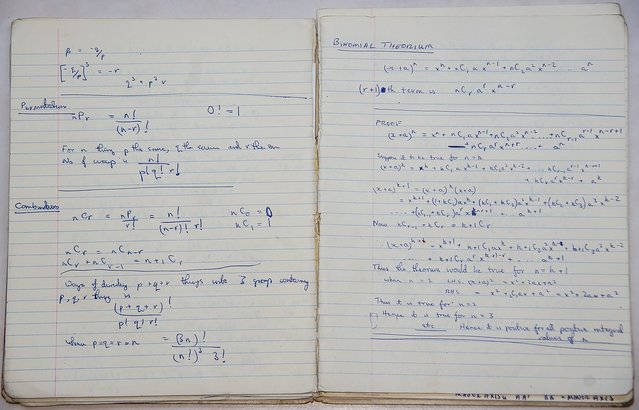 β = -q/p
[-q/p]³ = -r
q³ = p³r
Permutations
nPr = n!/(n-r)!   0! = 1
For n things p the same, q the same and r the same
No of ways is n!/(p! q! r!)
Combinations
nCr = nPr/r! = n!/((n-r)! r!)   nC0 = 0
nC1 = 1
nCr = nCn-r
nCr + nCr-1 = n+1Cr
Ways of dividing p+q+r things into 3 groups containing
p, q, r things is
(p+q+r)!/(p! q! r!)
where p=q=r=n = (3n)!/((n!)³ 3!)
BINOMIAL THEORIUM
(x+a)ⁿ = xⁿ + nC1 a xⁿ⁻¹ + nC2 a² xⁿ⁻² .... aⁿ
(r+1)th term is nCr aʳ xⁿ⁻ʳ
PROOF
(x+a)ⁿ = xⁿ + nC1 a xⁿ⁻¹ + nC2 a² xⁿ⁻² .... + nCr-1 aʳ⁻¹ xⁿ⁻ʳ⁺¹
+ nCr aʳ xⁿ⁻ʳ .... + aⁿ
Suppose it to be true for n = k
(x+a)ᵏ = xᵏ + kC1 a xᵏ⁻¹ + kC2 a² xᵏ⁻² .... kCr-1 aʳ⁻¹ xᵏ⁻ʳ⁺¹
+ kCr aʳ xᵏ⁻ʳ + aᵏ
(x+a)ᵏ⁺¹ = (x+a)ᵏ (x+a)
= xᵏ⁺¹ + (1+kC1) a xᵏ + (kC1+kC2) a² xᵏ⁻¹ + (kC2+kC3) a³ xᵏ⁻²
.... + (kCr-1+kCr) aʳ xᵏ⁻ʳ⁺¹ .... + aᵏ⁺¹
Now kCr-1 + kCr = k+1Cr
.... + k+1Cr aʳ xᵏ⁺¹⁻ʳ .... aᵏ⁺¹
Thus the theorem would be true for n = k+1
when n = 2 LHS (x+a)² = x² + 2ax + a²
RHS = x² + 2C1 ax + a² = x² + 2ax + a²
Thus it is true for n = 2
Hence it is true for n = 3
etc Hence it is positive for all positive integral
values of n
MAJOR AXIS AA' BB' = MINOR AXIS